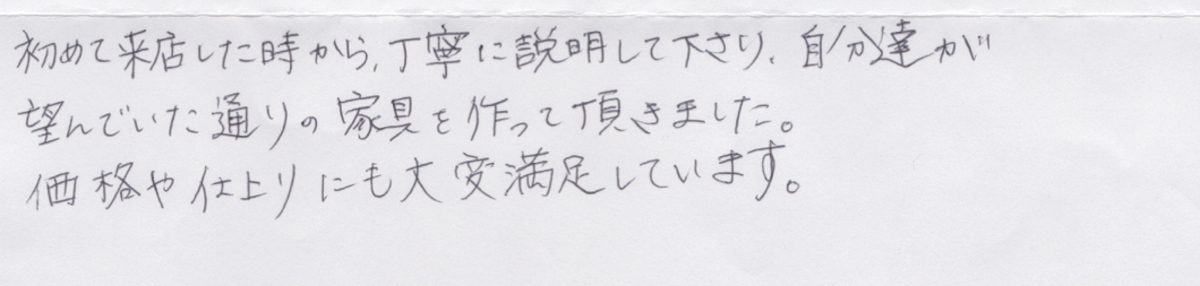 初めて来店した時から、丁寧に説明して下さり、自分達が
望んでいた通りの家具を作って頂きました。
価格や仕上りにも大変満足しています。